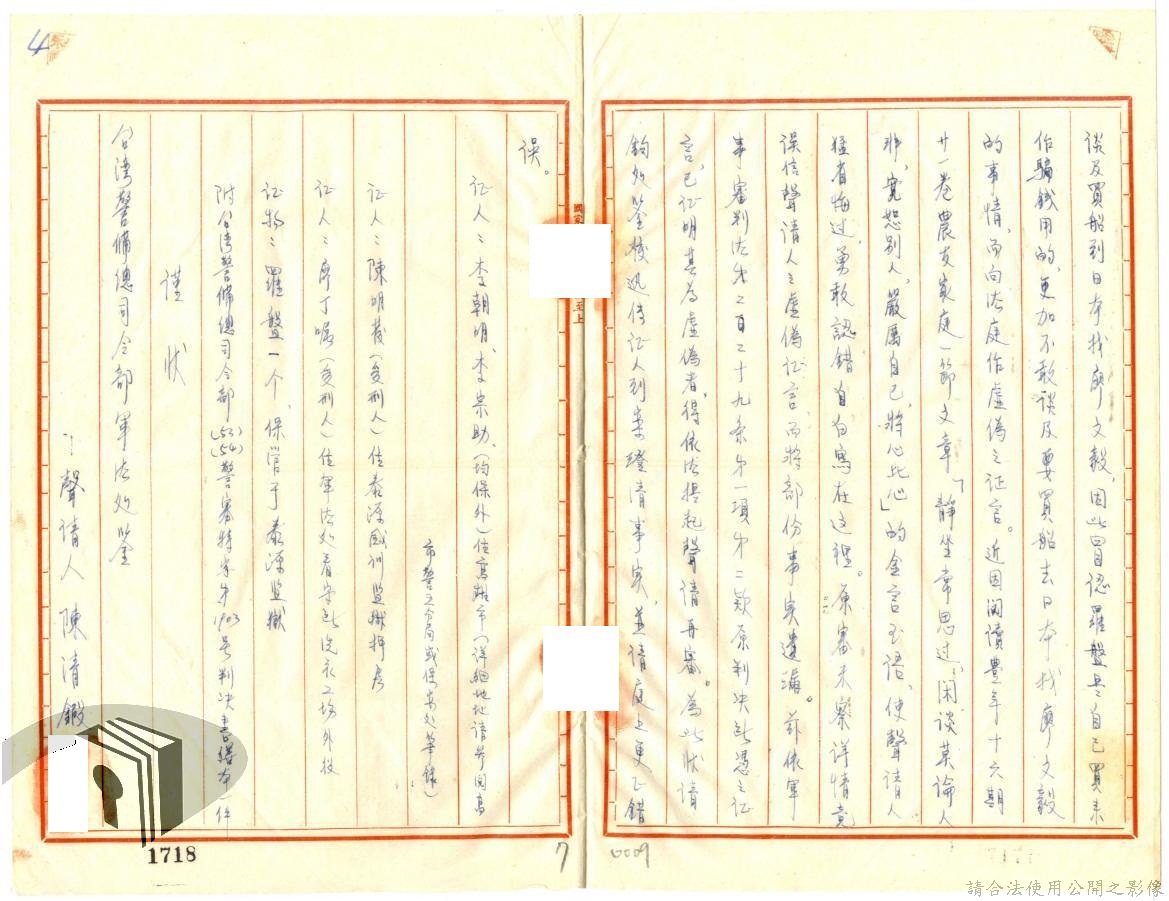 4
談及買船到日本找廖文毅,因此冒認羅盤是自己買來
作騙錢用的,更加不敢談及要買船去日本找廖文毅
的事情,而向法庭作虛偽之証言。近因閱讀豊年十六期
廿一卷農友家庭一節文章「靜坐常思过,闲谈莫論人
非,寬恕別人,嚴厲自己,將心比心」的金言玉语,使聲请人
猛省悔过,勇敢認錯自白寫在这裡。原審未察详情竟
误信聲请人之虛偽证言,而將部份事实遺漏。茲依軍
事審判法第二百二十九条第一項第二欵原判决所憑之证
言,已证明其為虛偽者,得依法提起聲请再審。為此狀请
鈞处鉴核迅传证人到案澄清事实,並请庭上更正錯
误。
证人:李朝明、李宗助、(均保外)住高雄市(详細地址请参阅高
市警三分局或保安处筆錄)
证人:陳明發(受刑人)住泰源感训监獄押房
证人:廖丁嘴(受刑人)住軍法处看守所洗衣工场外技
证物:羅盤一个,保管于泰源监獄
附台湾警備總司令部(53)(54)警審特字第1903号判决書繕本一件
谨狀
台湾警備總司令部軍法处鉴
聲请人 陳清鍛
國家
至上
1718
7
0009
請合法使用公開之影像